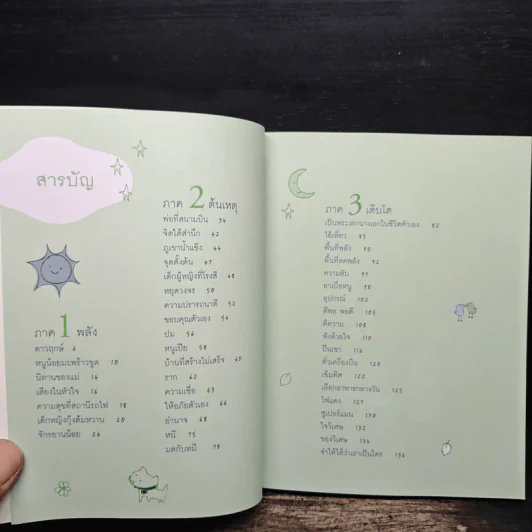 สารบัญ
ภาค 1 พลัง
ดาวฤกษ์ 6
หนูน้อยมะพร้าวขูด 10
นิทานของแม่ 14
เสียงในหัวใจ 16
ความสุขที่สถานีรถไฟ 18
เด็กหญิงกุ้งต้มหวาน 20
จักรยานน้อย 24
ภาค 2 ต้นเหตุ
พ่อที่สนามบิน 34
จิตใต้สำนึก 42
ภูเขาน้ำแข็ง 44
จุดตั้งต้น 47
เด็กผู้หญิงที่โรงสี 48
หยุดวงจร 50
ความปรารถนาดี 52
ขอบคุณตัวเอง 54
ปม 56
หนูเปีย 58
บ้านที่สร้างไม่เสร็จ 60
ราก 62
ความเชื่อ 63
ให้อภัยตัวเอง 66
อำนาจ 68
หนี 75
มดกับหมี 78
ภาค 3 เติบโต
เป็นพระเอกนางเอกในชีวิตตัวเอง 82
ไร้เดียว 85
พื้นที่พลัง 90
พื้นที่ลดพลัง 92
ความลับ 97
ยาเบื่อหนู 98
อุปกรณ์ 102
ดีพอ พอดี 104
ตีความ 108
ฟังด้วยใจ 110
ปีนเขา 116
ตัวเครื่องบิน 120
เข็มทิศ 122
เลือกอาหารกลางวัน 125
ไฟแดง 127
ซูเปอร์แมน 130
ใจวิเศษ 132
ของวิเศษ 134
จำให้ได้ว่าเราเป็นใคร 136